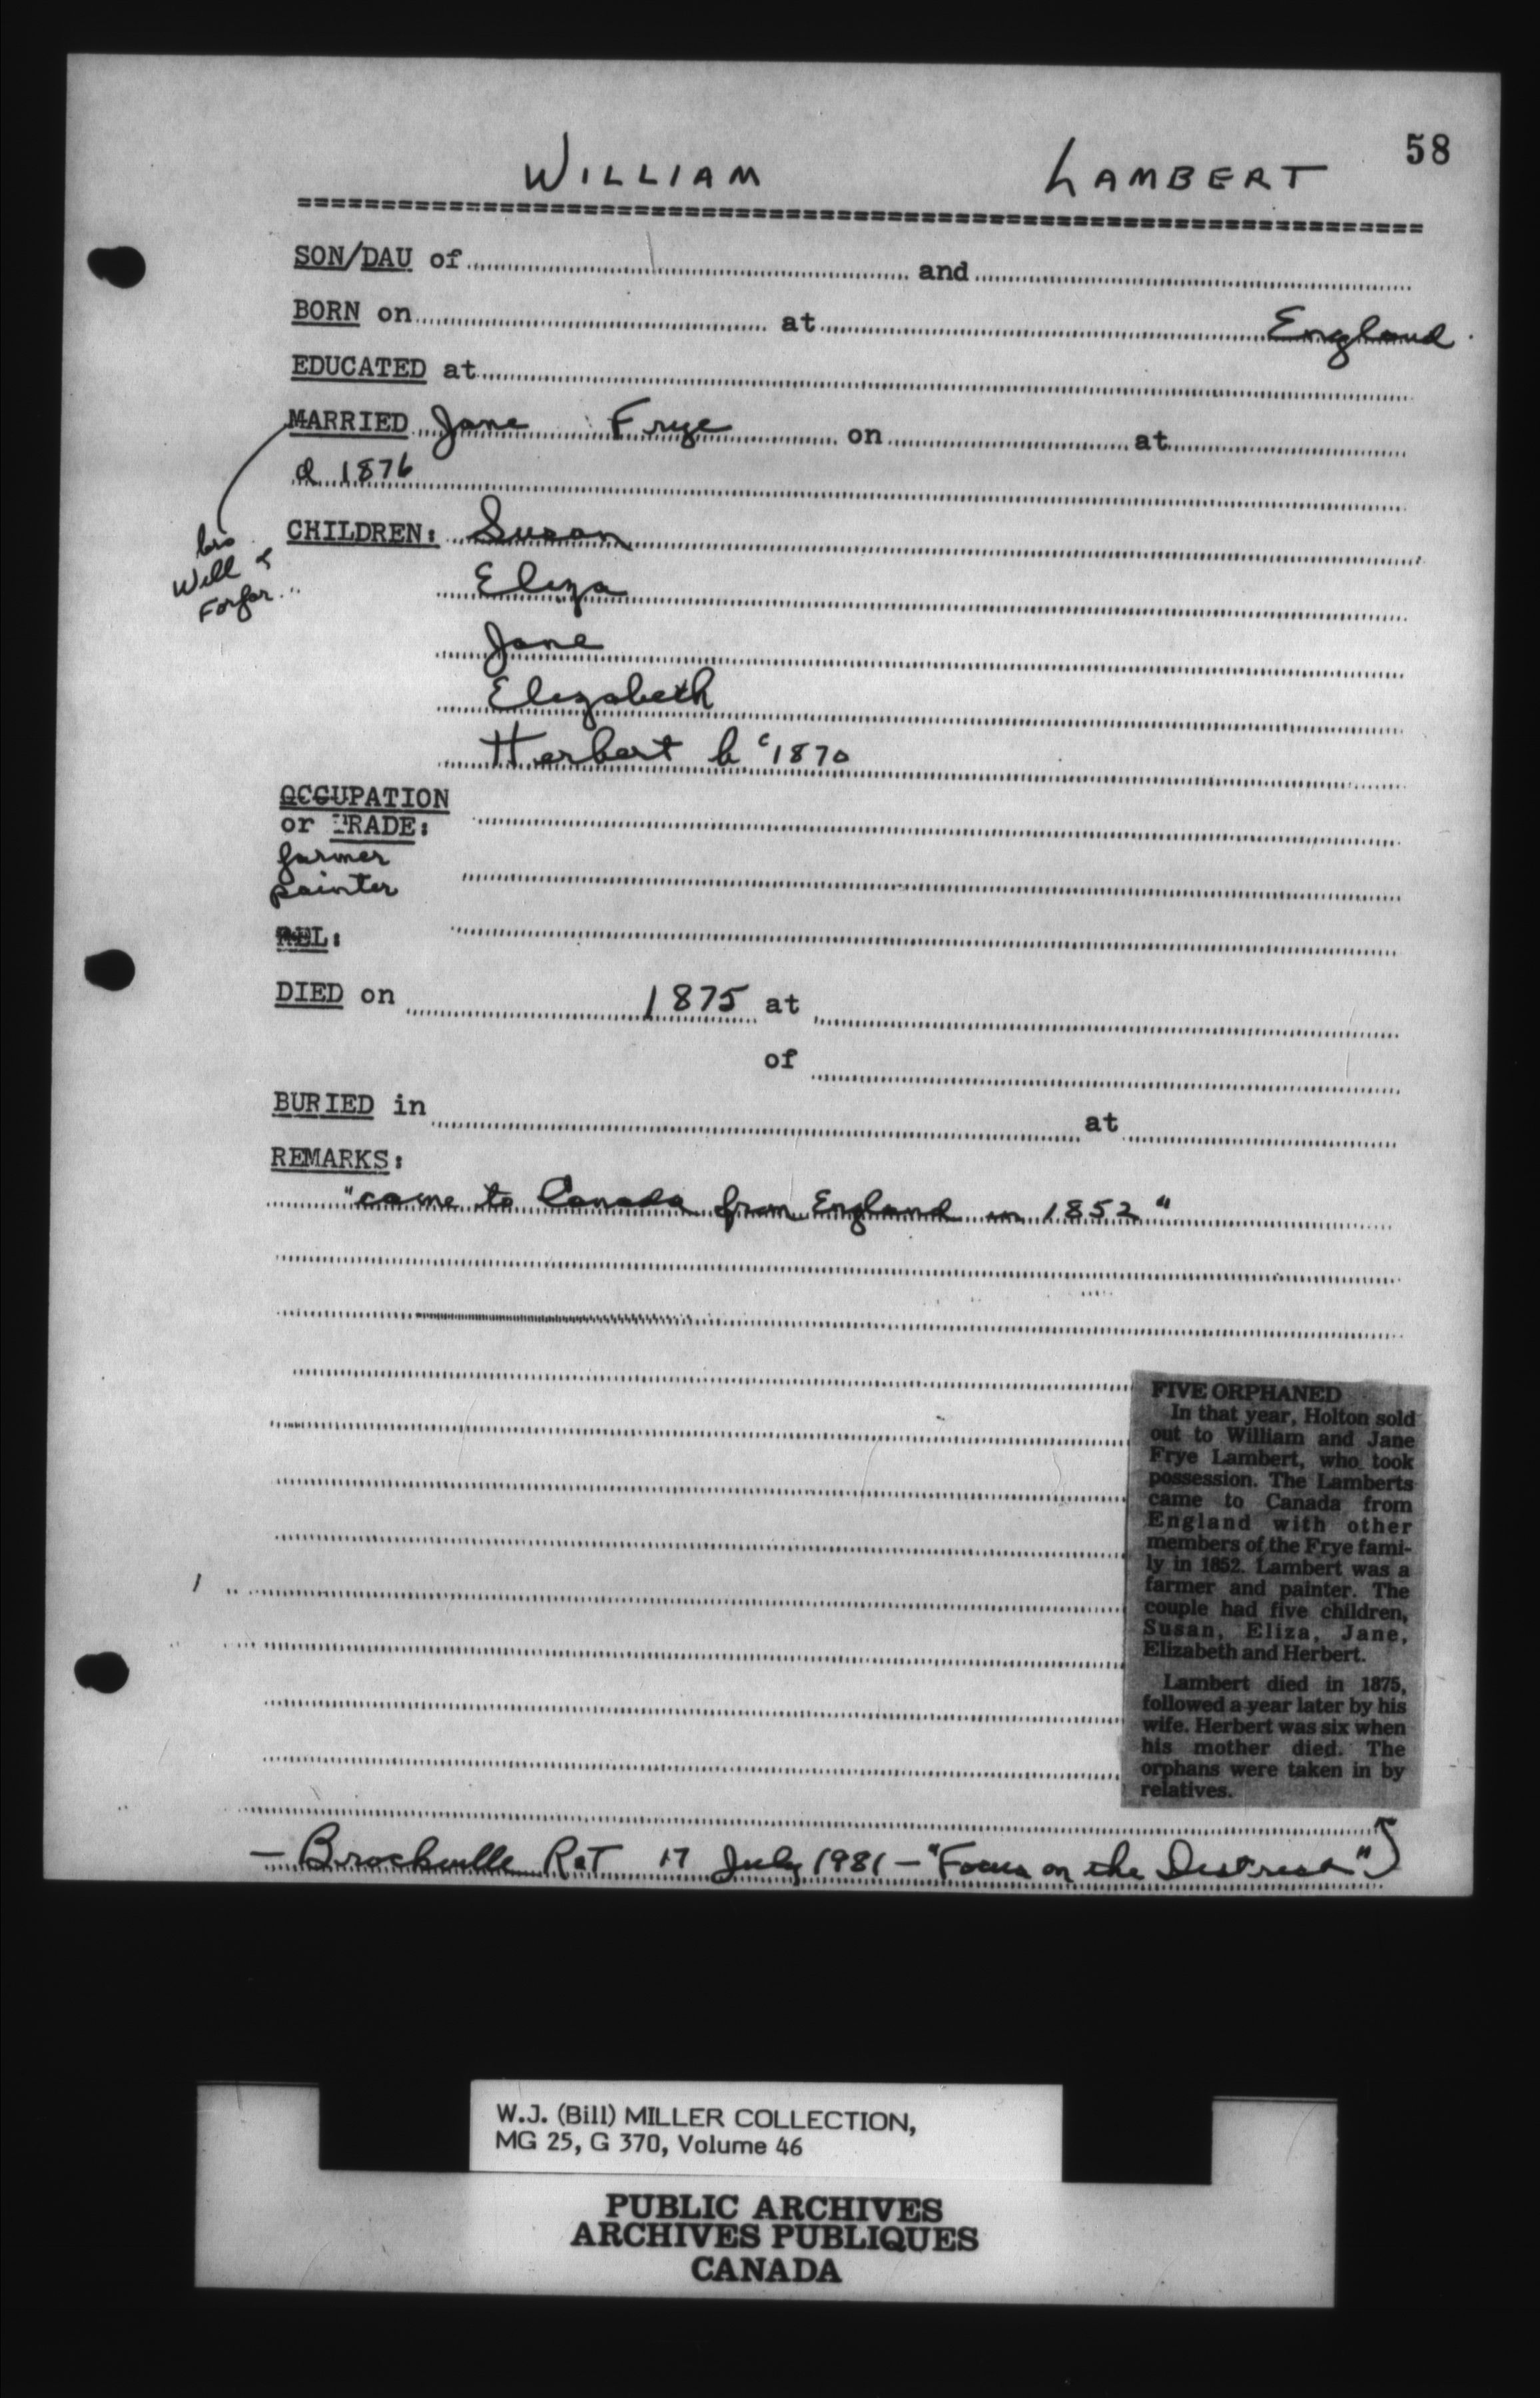 58
WILLIAM LAMBERT
SON/DAU of and
BORN on at England.
EDUCATED at
MARRIED Jane Frye on at
d 1876
bro
Will &
Forfar
CHILDREN: Susan
Eliza
Jane
Elizabeth
Herbert b c1870
OCCUPATION
or TRADE:
farmer
painter
REL:
DIED on 1875 at
of
BURIED in at
REMARKS:
"came to Canada from England in 1852"
FIVE ORPHANED
In that year, Holton sold
out to William and Jane
Frye Lambert, who took
possession. The Lamberts
came to Canada from
England with other
members of the Frye fami-
ly in 1852. Lambert was a
farmer and painter. The
couple had five children,
Susan, Eliza, Jane,
Elizabeth and Herbert.
Lambert died in 1875,
followed a year later by his
wife. Herbert was six when
his mother died. The
orphans were taken in by
relatives.
- Brockville R&T 17 July 1981 - "Focus on the District"
W.J. (Bill) MILLER COLLECTION,
MG 25, G 370, Volume 46
PUBLIC ARCHIVES
ARCHIVES PUBLIQUES
CANADA